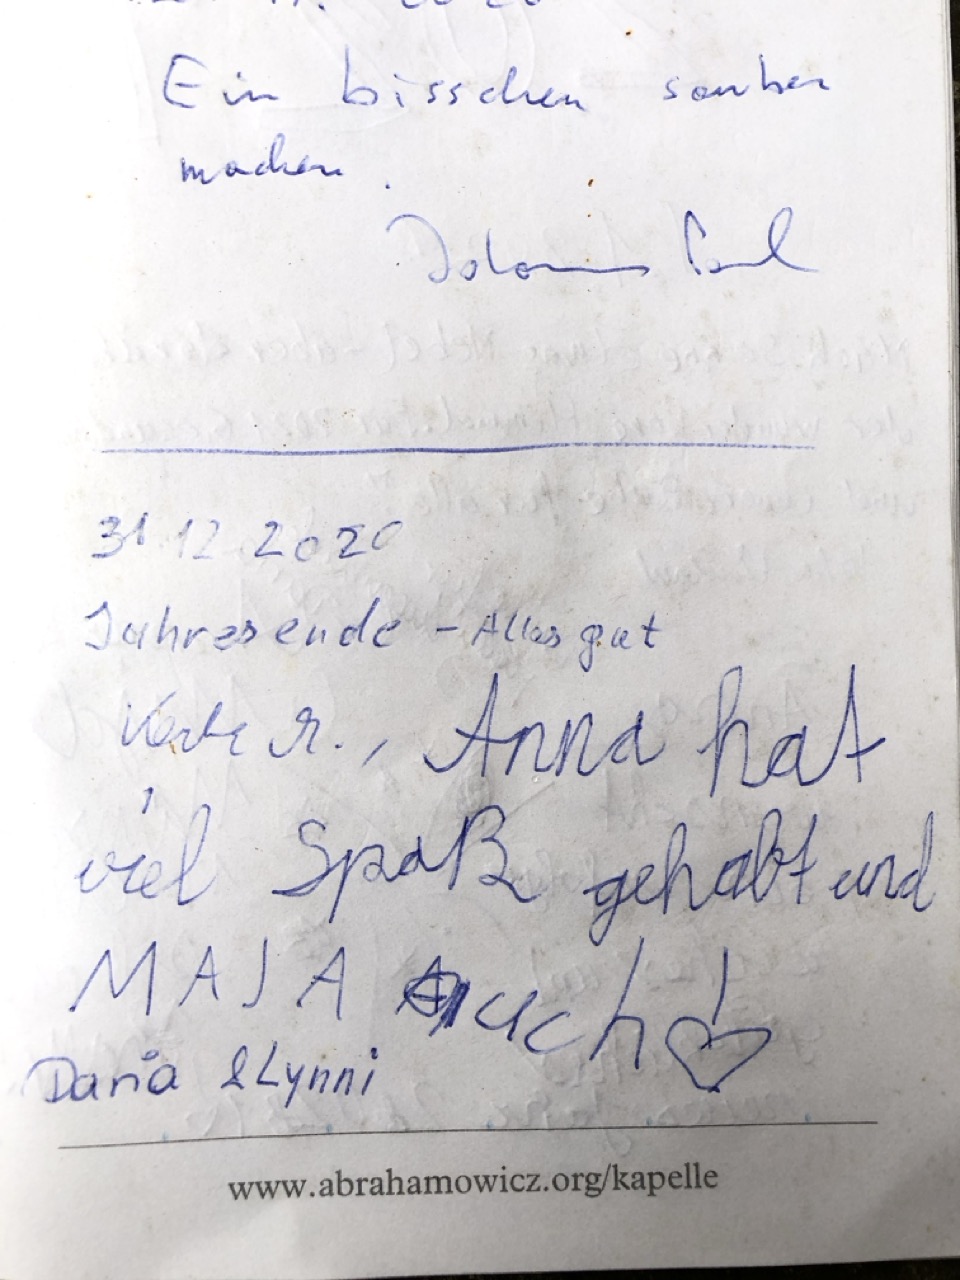 2020
Ein bisschen sauber
machen.
31.12.2020
Jahresende - Alles gut
Anna hat
viel Spaß gehabt und
MAJA auch!
Daria & Lynni
www.abrahamowicz.org/kapelle